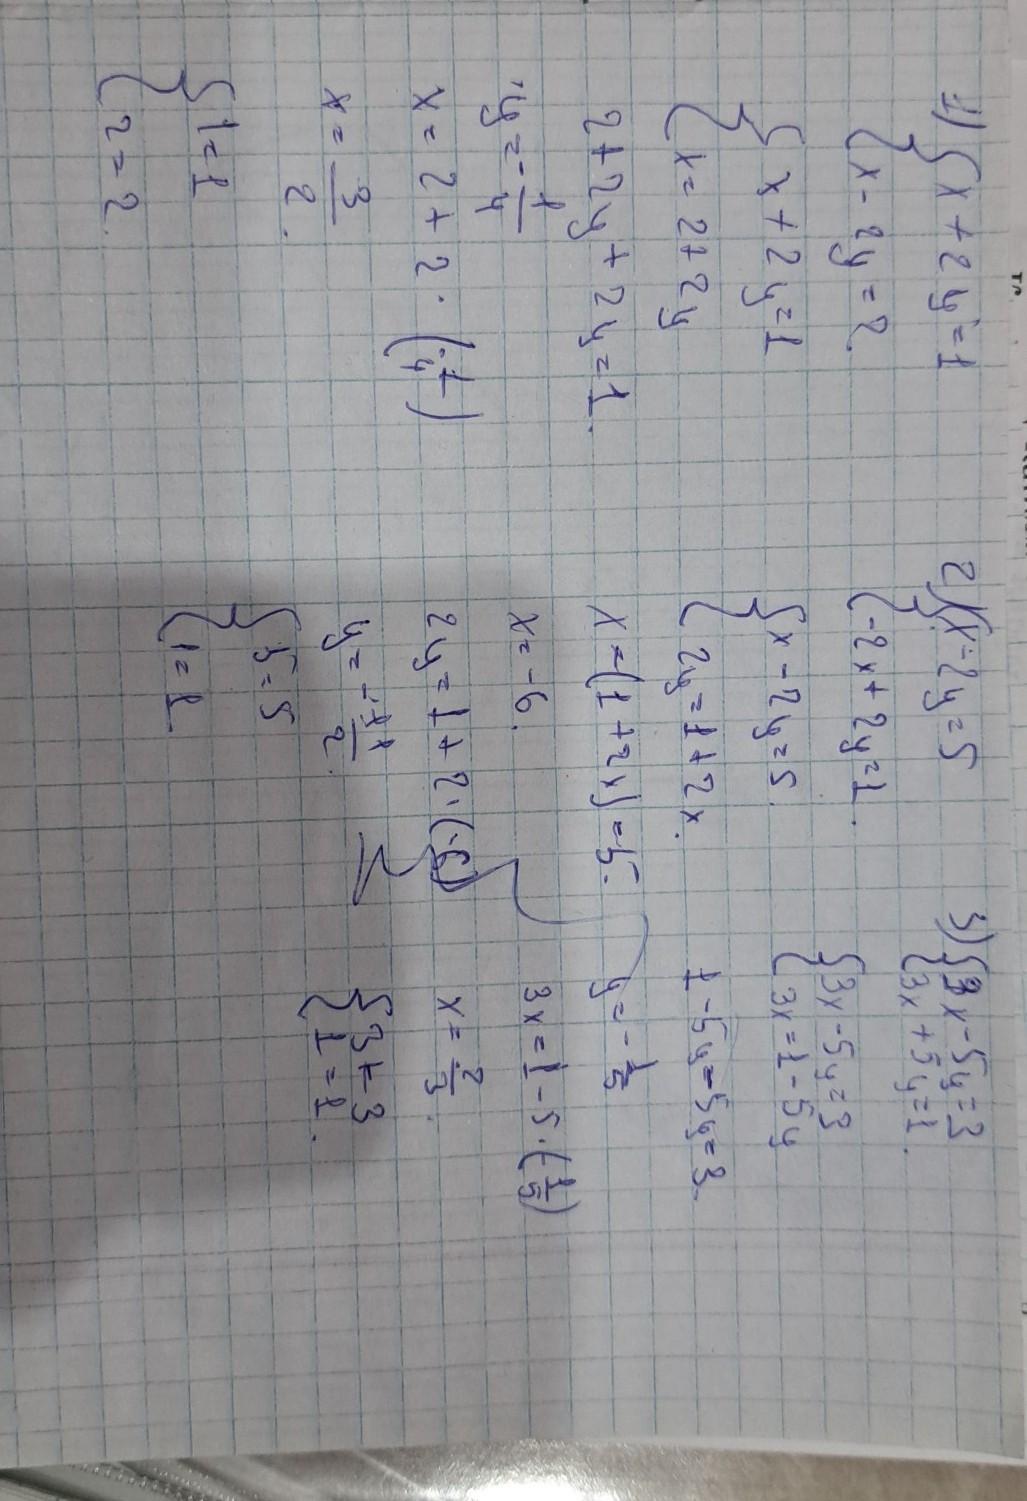 1) { x + 2y = 1
{ x - 2y = 2.
{ x + 2y = 1
{ x = 2 + 2y
2 + 2y + 2y = 1.
y = -1/4
x = 2 + 2 · (-1/4)
x = 3/2.
{ 1 = 1
{ 2 = 2.
2) { x - 2y = 5
{ -2x + 2y = 1.
{ x - 2y = 5.
{ 2y = 1 + 2x.
x - (1 + 2x) = 5.
x = -6.
2y = 1 + 2 · (-6)
y = -11/2.
{ 5 = 5
{ 1 = 1
3) { 3x - 5y = 3
{ 3x + 5y = 1.
{ 3x - 5y = 3
{ 3x = 1 - 5y
1 - 5y - 5y = 3.
y = -1/5
3x = 1 - 5 · (-1/5)
x = 2/3.
{ 3 = 3
{ 1 = 1.